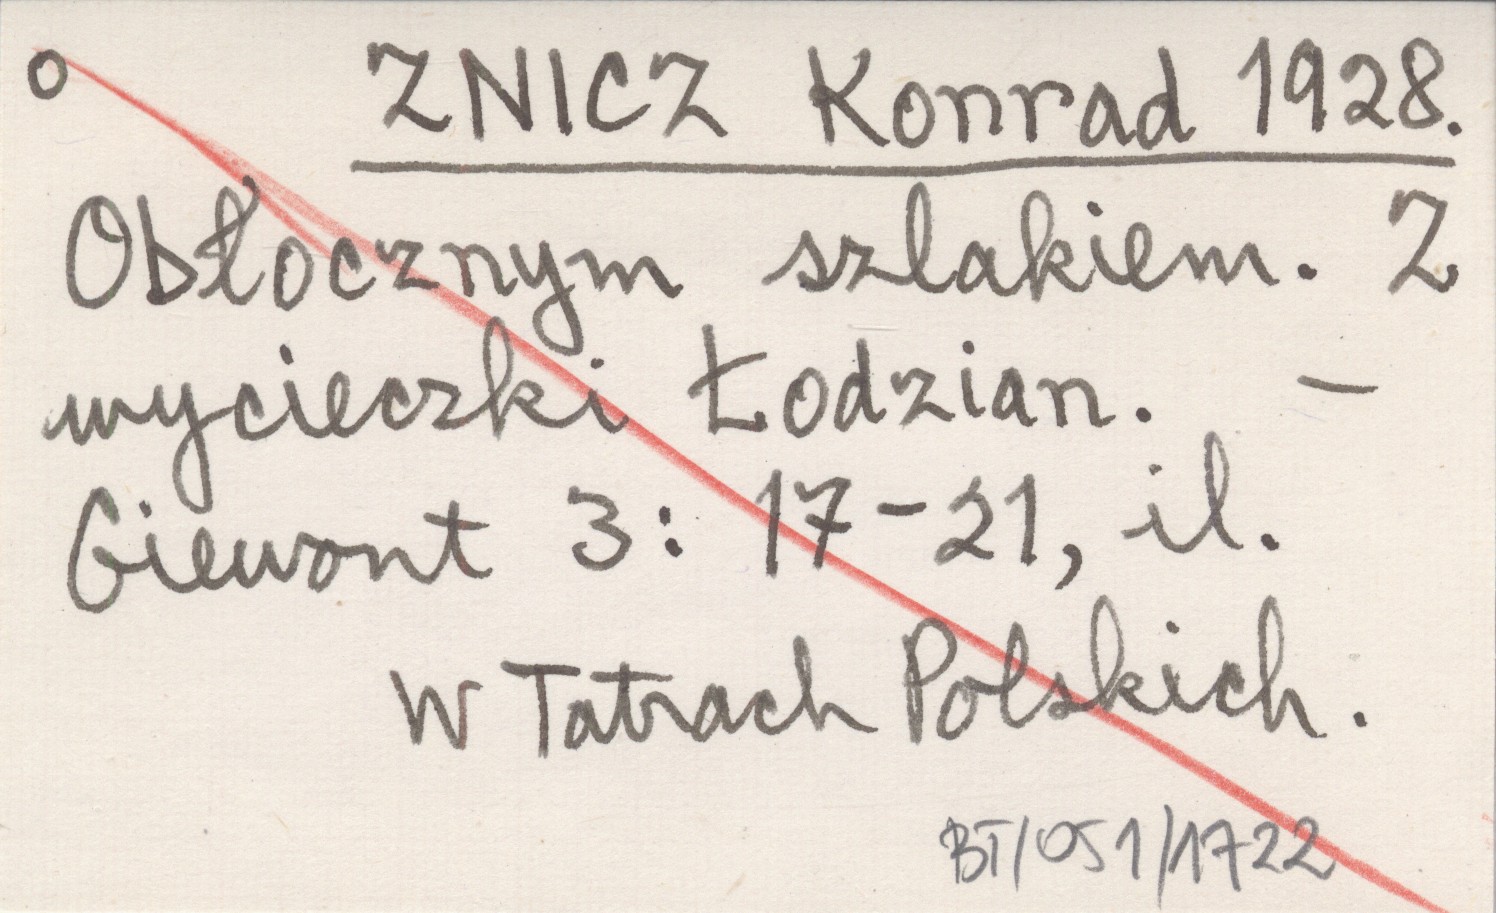 o ZNICZ Konrad 1928.
Obłocznym szlakiem. Z
wycieczki Łodzian. –
Giewont 3: 17-21, il.
W Tatrach Polskich.
BT/051/1722